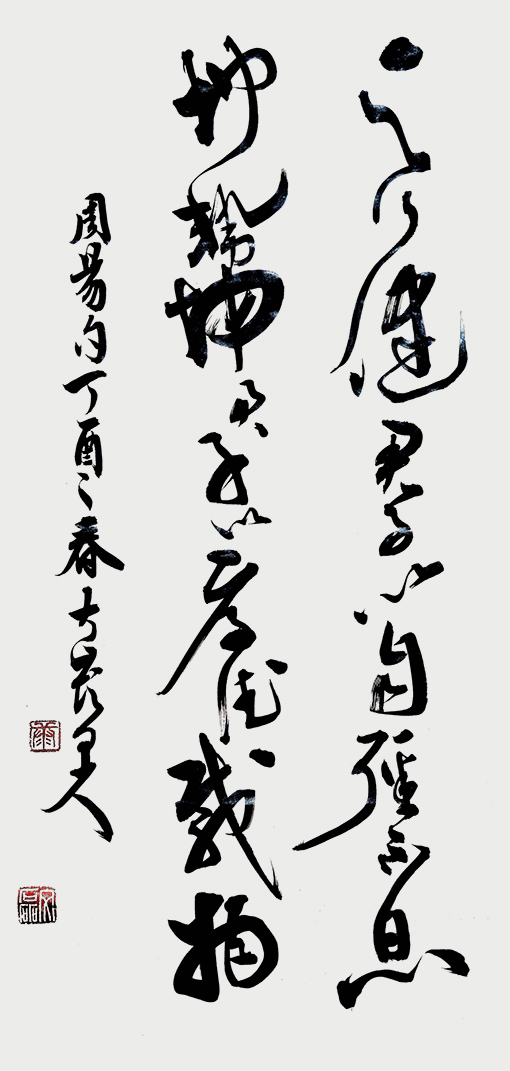 天行健君子以自强不息
地势坤君子以厚德载物
周易句丁酉之春